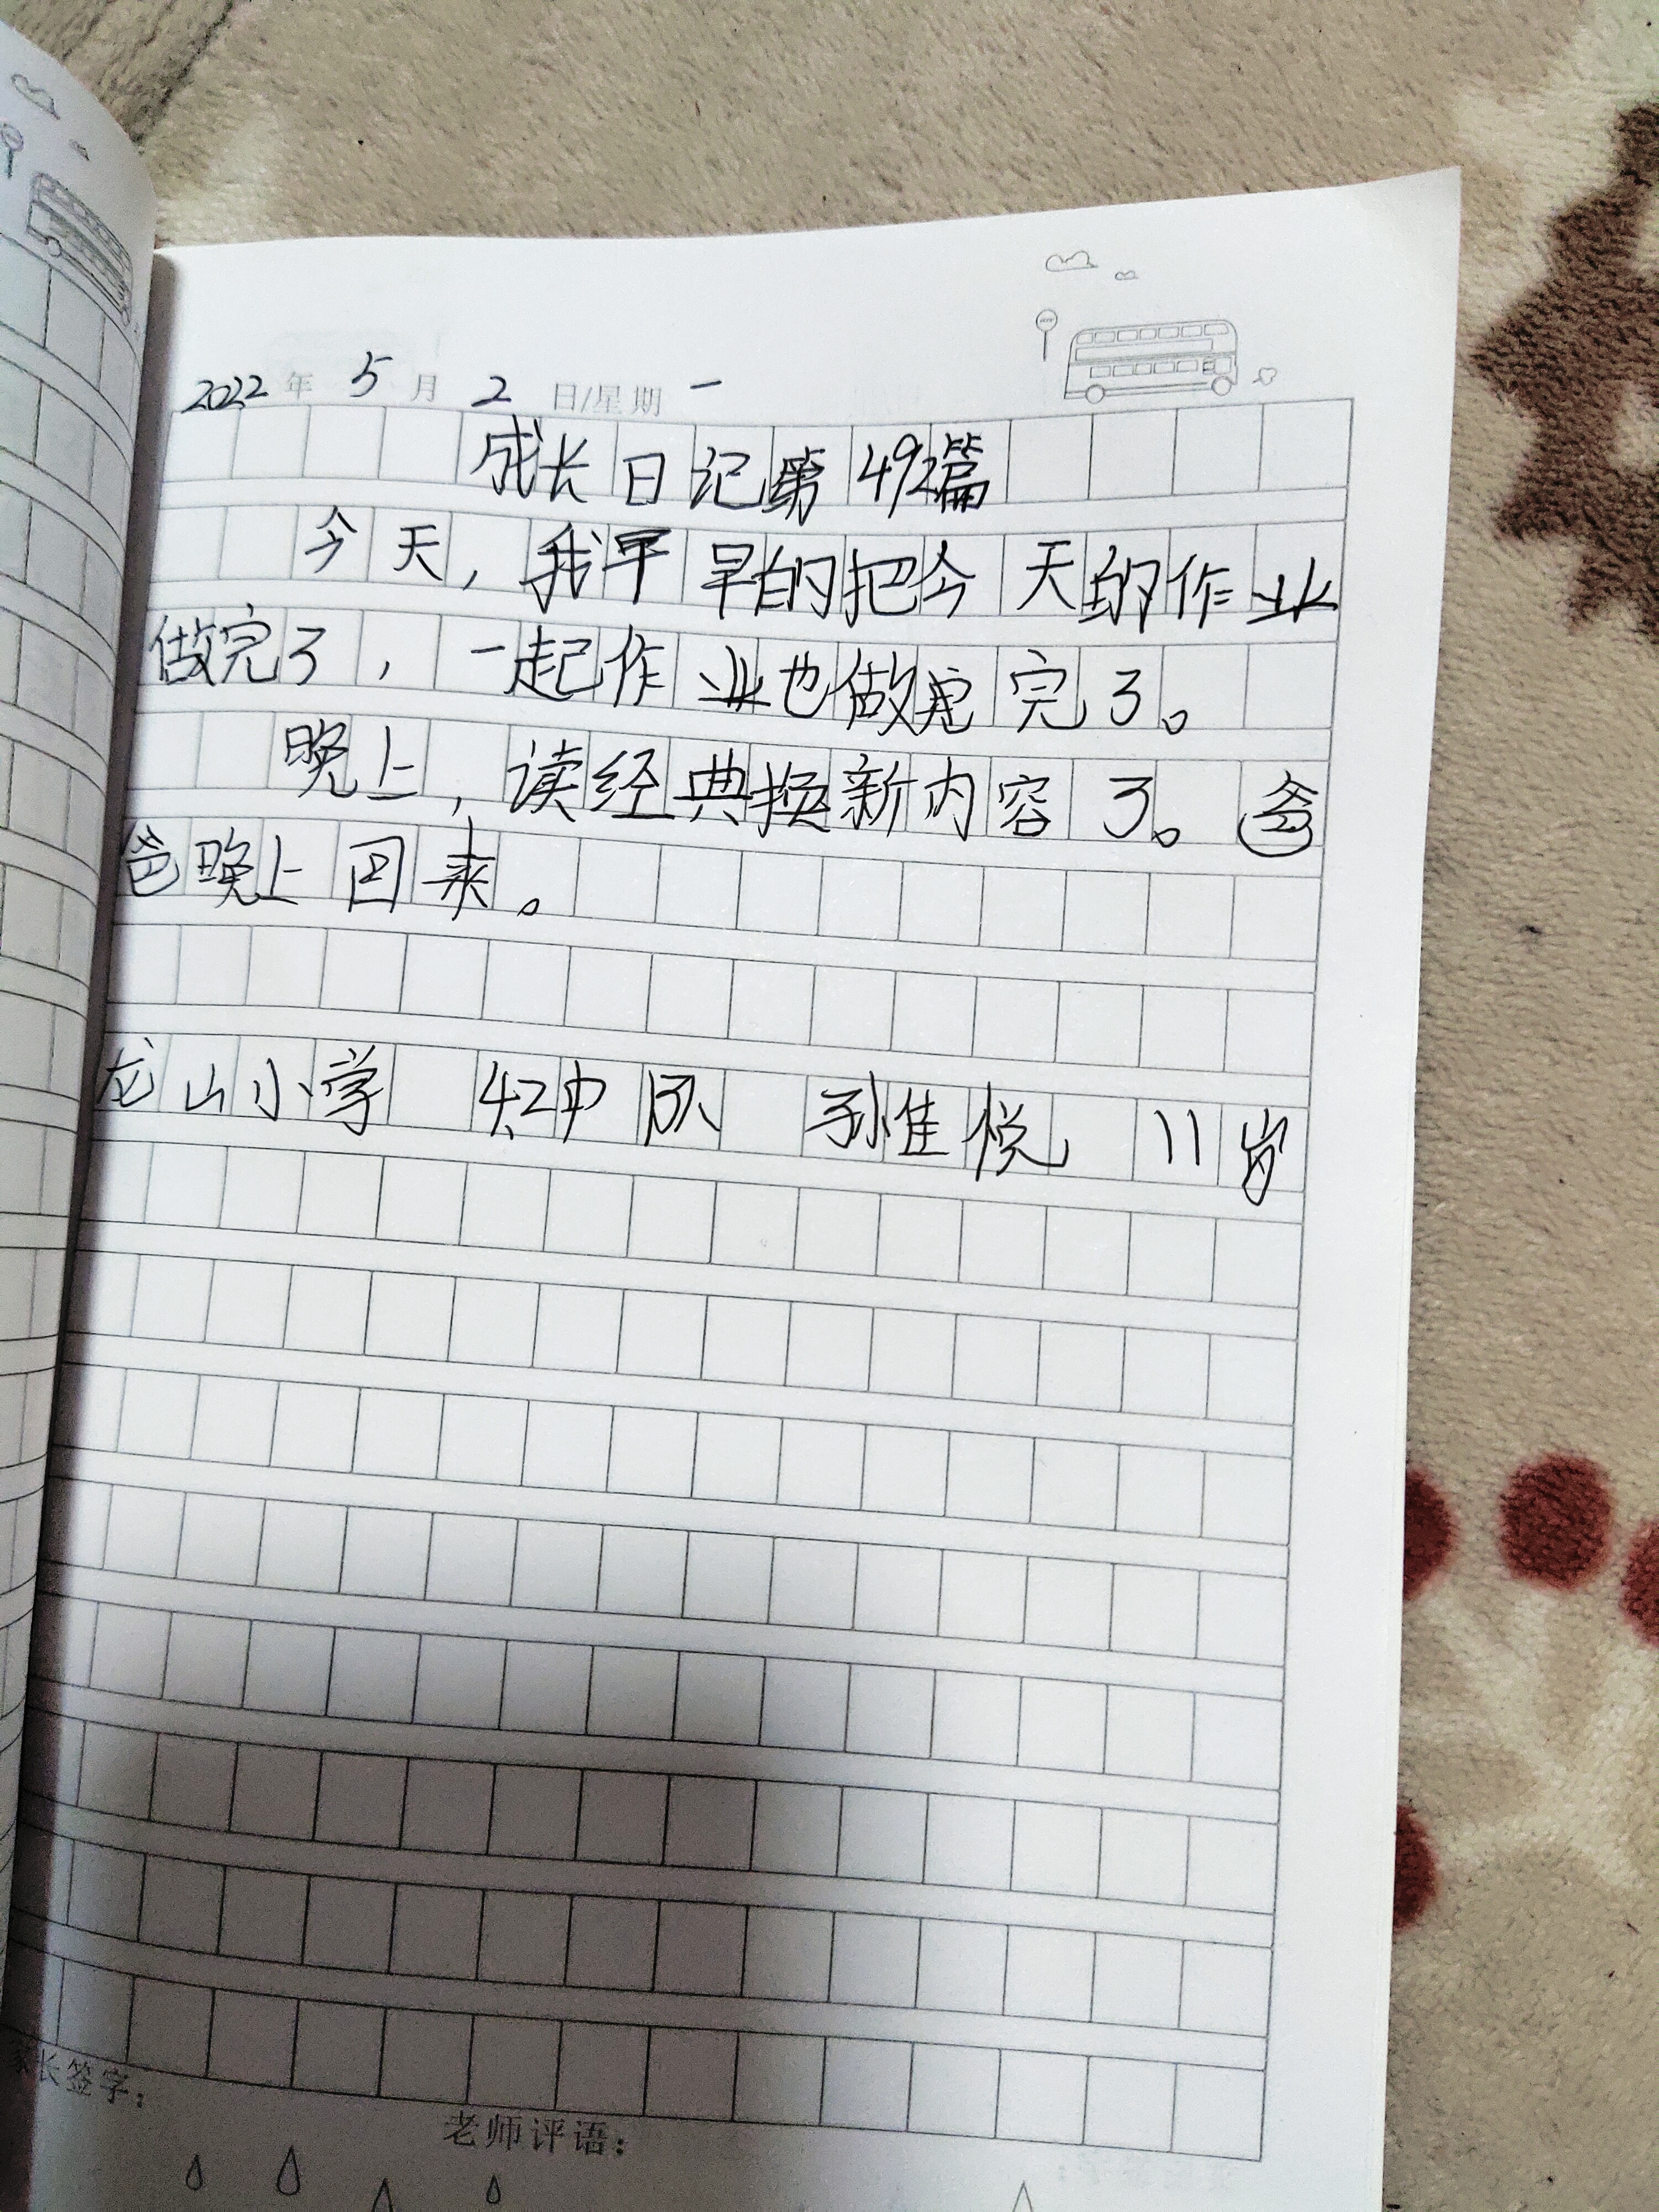 2022年 5月 2日/星期一
成长日记第492篇
今天，我早早的把今天的作业
做完了，一起作业也做完了。
晚上，读经典换新内容了。爸
爸晚上回来。
龙山小学 4.2中队 孙佳悦 11岁
家长签字：
老师评语：